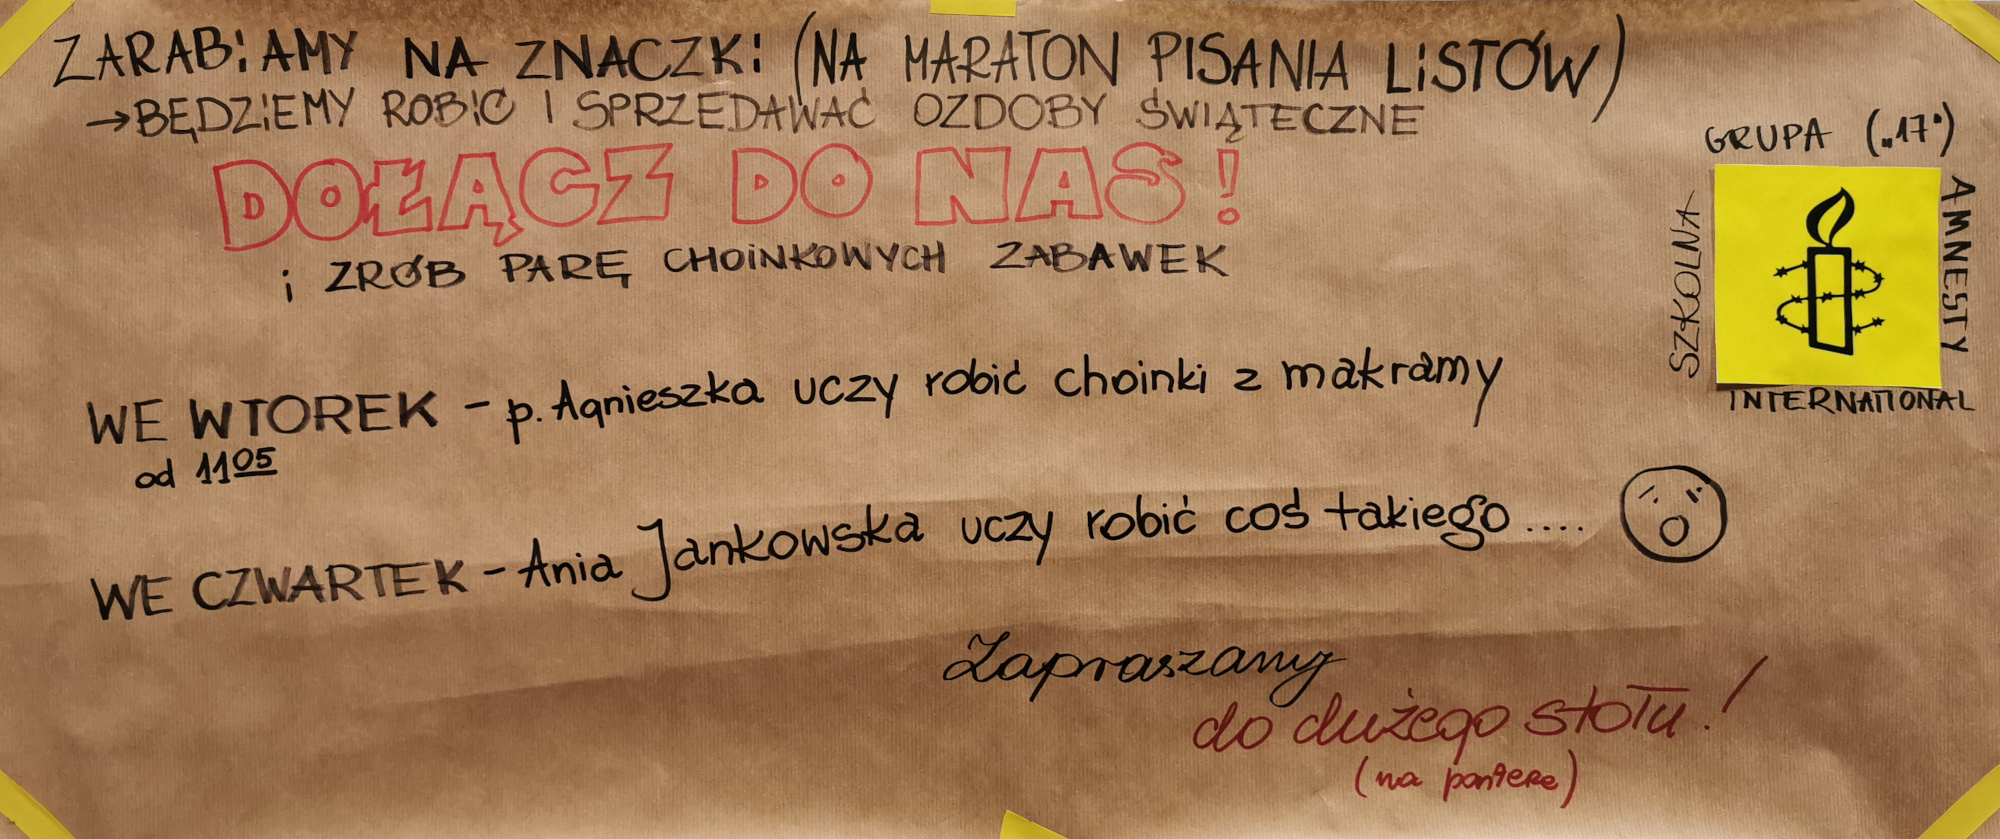 ZARABiAMY NA ZNACZKi (NA MARATON PISANIA LiSTÓW)
→BĘDZiEMY ROBIĆ I SPRZEDAWAĆ OZDOBY ŚWIĄTECZNE
DOŁĄCZ DO NAS!
i ZRÓB PARĘ CHOiNKOWYCH ZABAWEK
GRUPA („17")
SZKOLNA
AMNESTY
INTERNATIONAL
WE WTOREK - p. Agnieszka uczy robić choinki z makramy
od 11 05
WE CZWARTEK - Ania Jankowska uczy robić coś takiego....
Zapraszamy
do dużego stołu!
(na parterze)